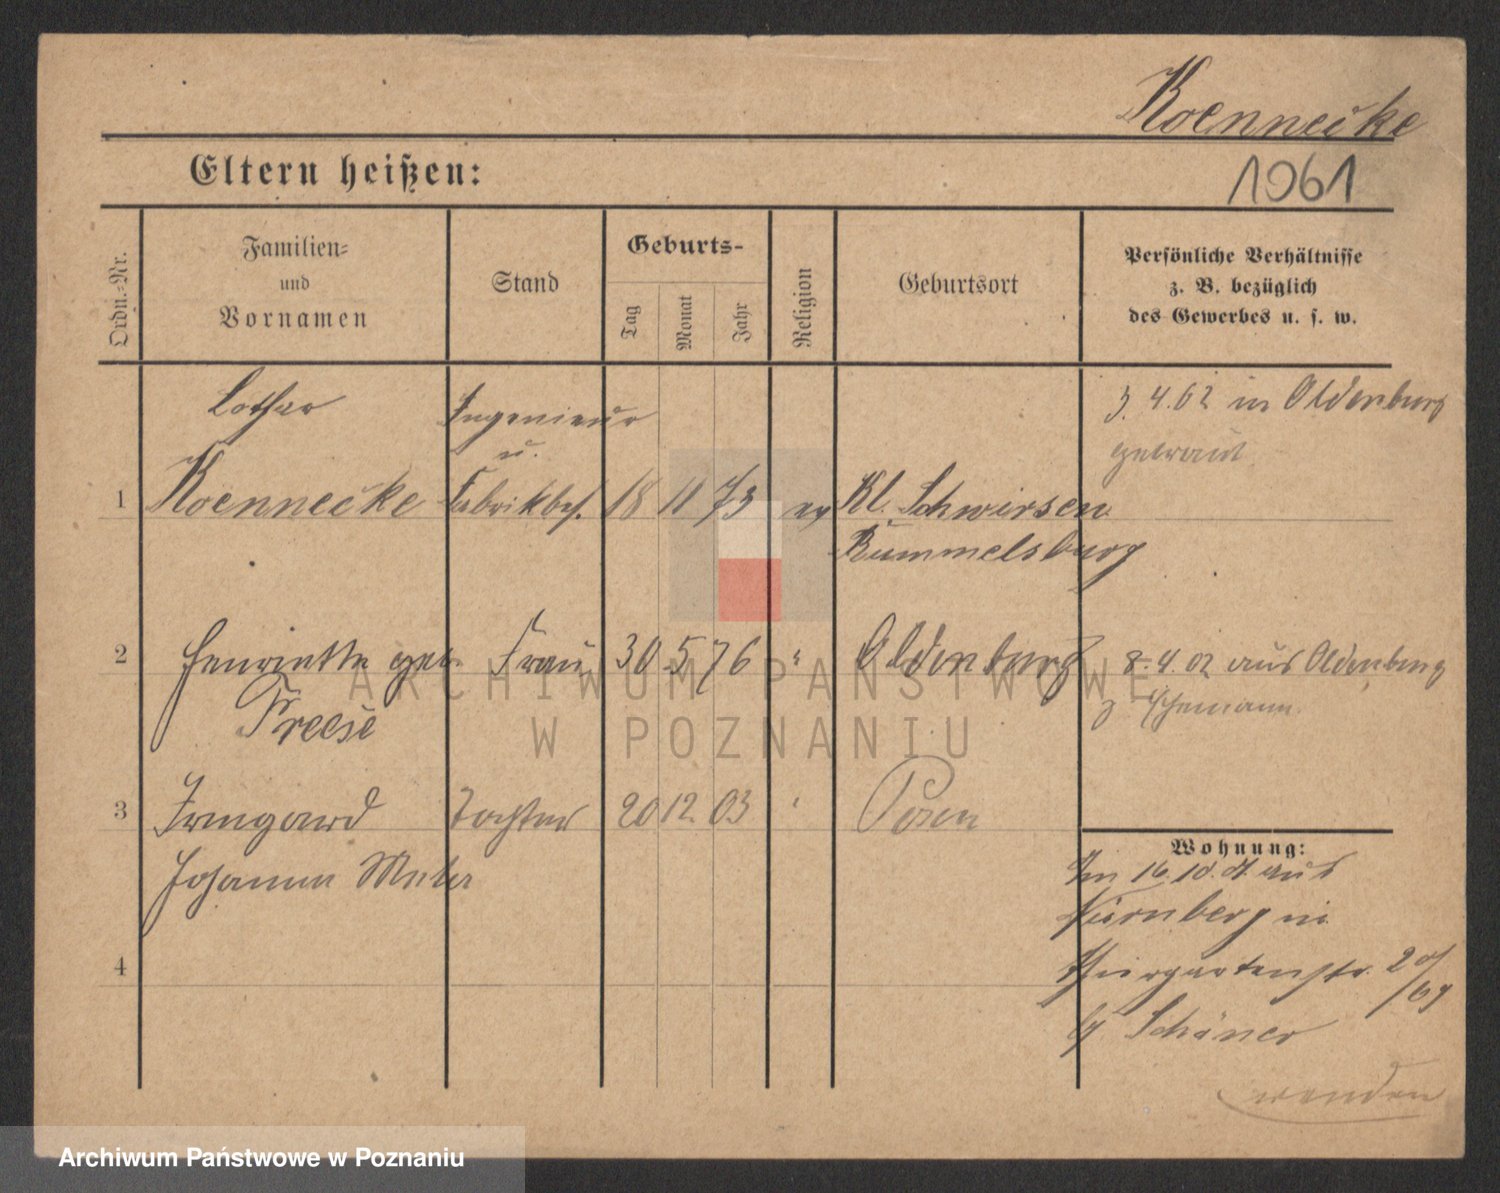 Koennecke
Eltern heißen:
1061
Ordn.=Nr.
Familien=
und
Vornamen
Stand
Geburts-
Tag
Monat
Jahr
Religion
Geburtsort
Persönliche Verhältnisse
z. B. bezüglich
des Gewerbes u. s. w.
Lothar
Ingenieur
u.
3.4.02 in Oldenburg
getraut
1
Koennecke
Fabrikbes.
18
11
73
ev
Kl. Schwirsen
Rummelsburg
2
Henriette geb.
Freese
Frau
30
5
76
"
Oldenburg
8.4.02 aus Oldenburg
z. Ehemann.
3
Irmgard
Johanne
Tochter
20
12.
03
"
Posen
Wohnung:
16.10. aus
Nürnberg in
Thiergartenstr.
Schöner
4
wenden
ARCHIWUM PAŃSTWOWE
W POZNANIU
Archiwum Państwowe w Poznaniu